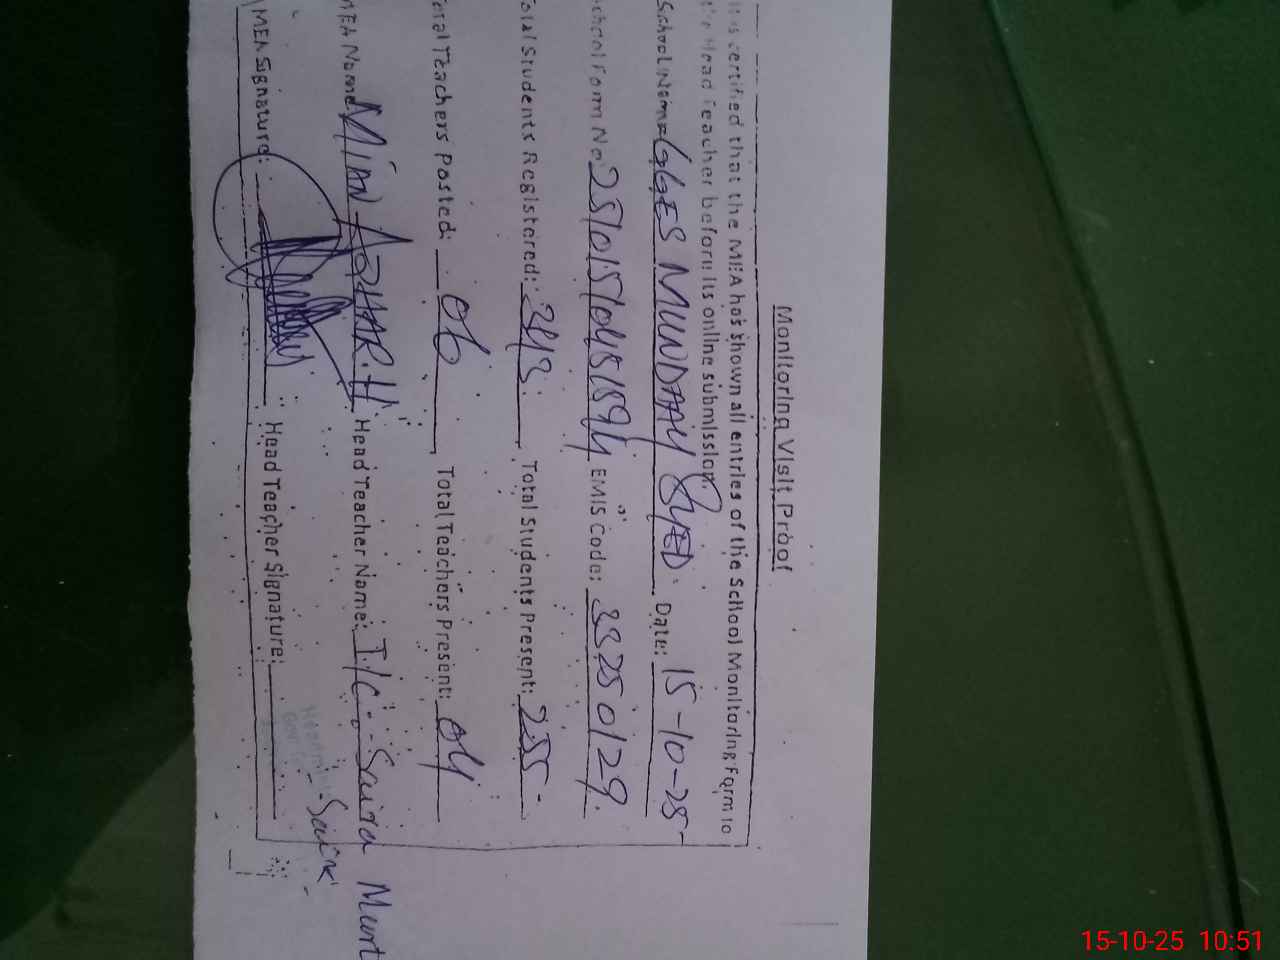 Monitoring Visit Proof
It is certified that the MEA has shown all entries of the School Monitoring Form to
the Head Teacher before its online submission.
School Name GGES MUNDAAY SYED. Date: 15-10-25-
School Form No. 25/015/045/594 EMIS Code: 33250129.
Total Students Registered: 343. Total Students Present: 255-
Total Teachers Posted: 06 Total Teachers Present: 04
MEA Name MIAN AZHAR.H Head Teacher Name: I/C.-Saira Murt
MEA Signature: Head Teacher Signature: -Saira
15-10-25 10:51